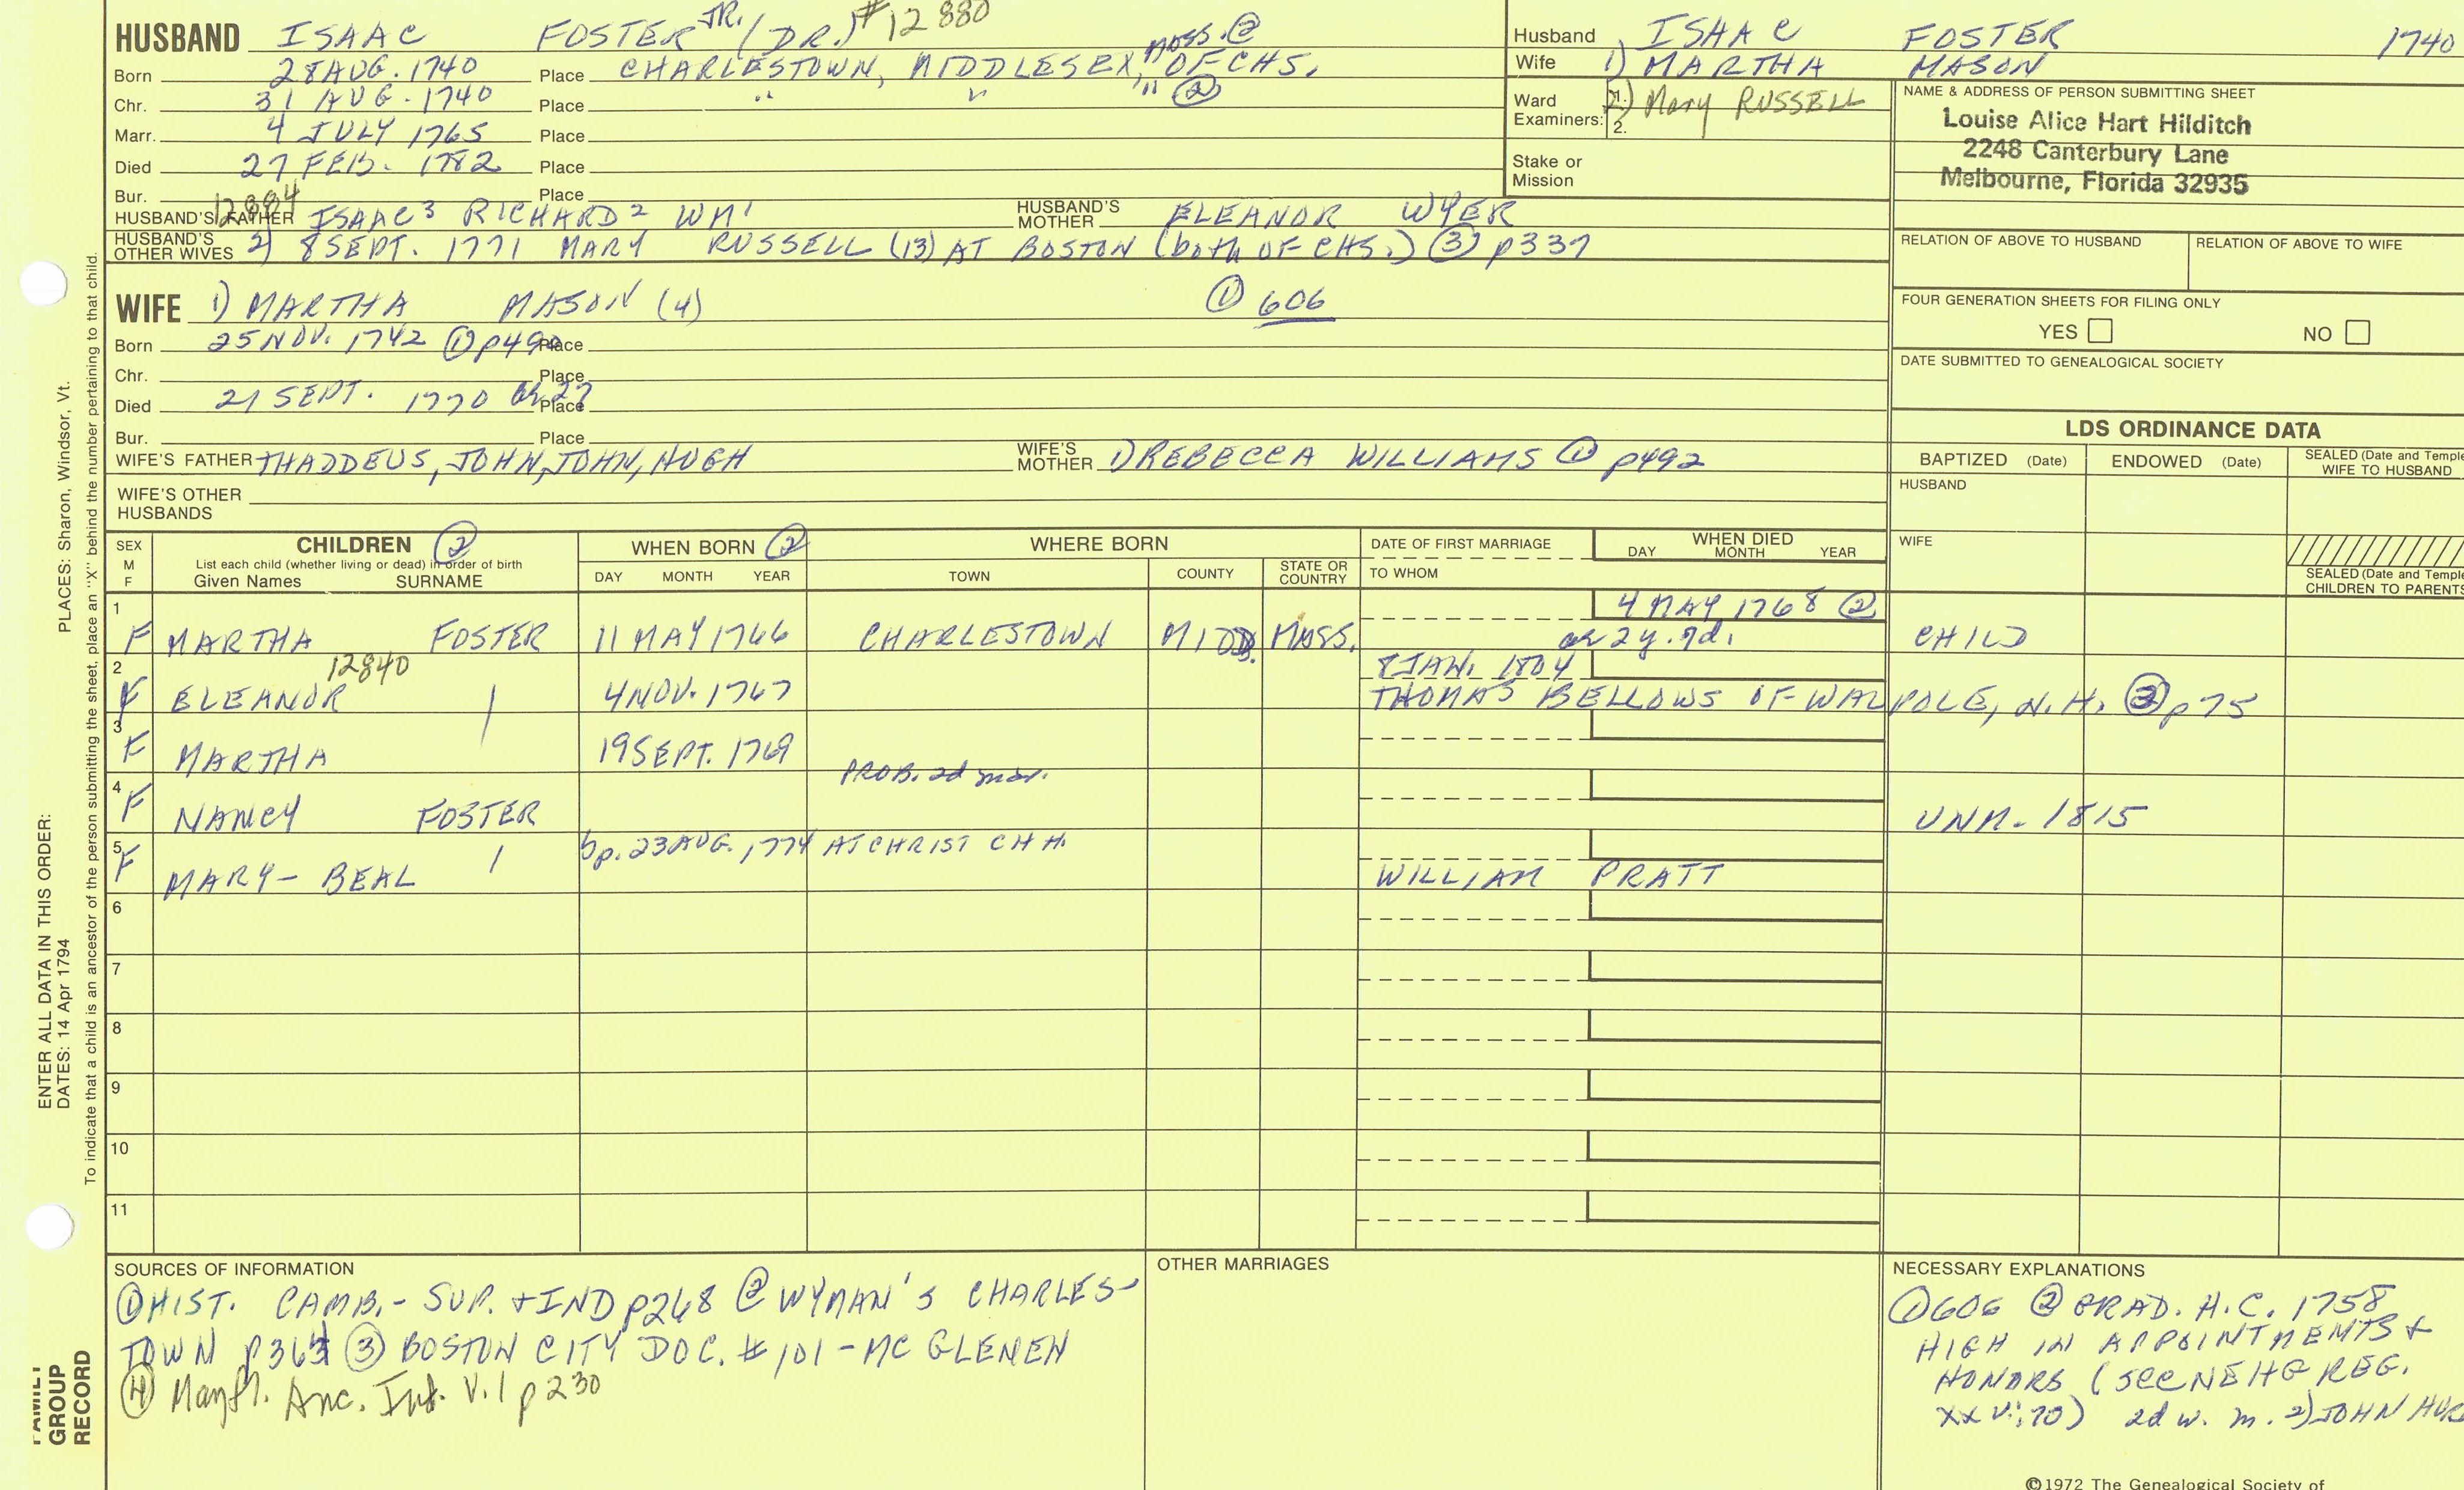 HUSBAND ISAAC FOSTER JR. (DR.) #12880
Born 28 AUG. 1740 Place CHARLESTOWN, MIDDLESEX, MASS. ② OF CHS.
Chr. 31 AUG. 1740 Place " " " ②
Marr. 4 JULY 1765 Place
Died 27 FEB. 1782 Place
Bur. Place
12884
HUSBAND'S FATHER ISAAC³ RICHARD² WM¹ HUSBAND'S MOTHER ELEANOR WYER
HUSBAND'S OTHER WIVES 2) 8 SEPT. 1771 MARY RUSSELL (13) AT BOSTON (both OF CHS.) ③ p337
WIFE 1) MARTHA MASON (4) ① 606
Born 25 NOV. 1742 ① p490 Place
Chr. Place
Died 21 SEPT. 1770 ae 27 Place
Bur. Place
WIFE'S FATHER THADDEUS, JOHN, JOHN, HUGH WIFE'S MOTHER 1) REBECCA WILLIAMS ① p492
WIFE'S OTHER HUSBANDS
Husband ISAAC FOSTER 1740
Wife 1) MARTHA MASON
Ward Examiners: 1. 2. 2) Mary RUSSELL
Stake or Mission
NAME & ADDRESS OF PERSON SUBMITTING SHEET
Louise Alice Hart Hilditch
2248 Canterbury Lane
Melbourne, Florida 32935
RELATION OF ABOVE TO HUSBAND RELATION OF ABOVE TO WIFE
FOUR GENERATION SHEETS FOR FILING ONLY
YES NO
DATE SUBMITTED TO GENEALOGICAL SOCIETY
LDS ORDINANCE DATA
BAPTIZED (Date) ENDOWED (Date) SEALED (Date and Temple WIFE TO HUSBAND
HUSBAND
WIFE
SEALED (Date and Temple
CHILDREN TO PARENTS
SEX M F CHILDREN ② WHEN BORN ② WHERE BORN DATE OF FIRST MARRIAGE WHEN DIED
List each child (whether living or dead) in order of birth
Given Names SURNAME DAY MONTH YEAR TOWN COUNTY STATE OR COUNTRY TO WHOM DAY MONTH YEAR
1 F MARTHA FOSTER 11 MAY 1766 CHARLESTOWN MIDD. MASS. 4 MAY 1768 ② ae 2y. 7d. CHILD
12840
2 F ELEANOR 4 NOV. 1767 8 JAN. 1804 THOMAS BELLOWS OF WALPOLE, N.H. ③ p75
3 F MARTHA 19 SEPT. 1769
PROB. 2d mar.
4 F NANCY FOSTER UNM. 1815
5 F MARY-BEAL bp. 23 AUG. 1774 AT CHRIST CHH. WILLIAM PRATT
6
7
8
9
10
11
SOURCES OF INFORMATION
① HIST. CAMB. - SUP. + IND p268 ② WYMAN'S CHARLES-
TOWN ③ BOSTON CITY DOC. #101 - MC GLENEN
④ Mayfl. Anc. V.1 p230
OTHER MARRIAGES
NECESSARY EXPLANATIONS
① 606 ② GRAD. H.C. 1758
HIGH IN APPOINTMENTS +
HONORS (SEE NEHG REG.
XXV:70) 2d w. m. 2) JOHN
©1972 The Genealogical Society of
PLACES: Sharon, Windsor, Vt.
ENTER ALL DATA IN THIS ORDER:
DATES: 14 Apr 1794
To indicate that a child is an ancestor of the person submitting the sheet, place an "X" behind the number pertaining to that child.
FAMILY
GROUP
RECORD